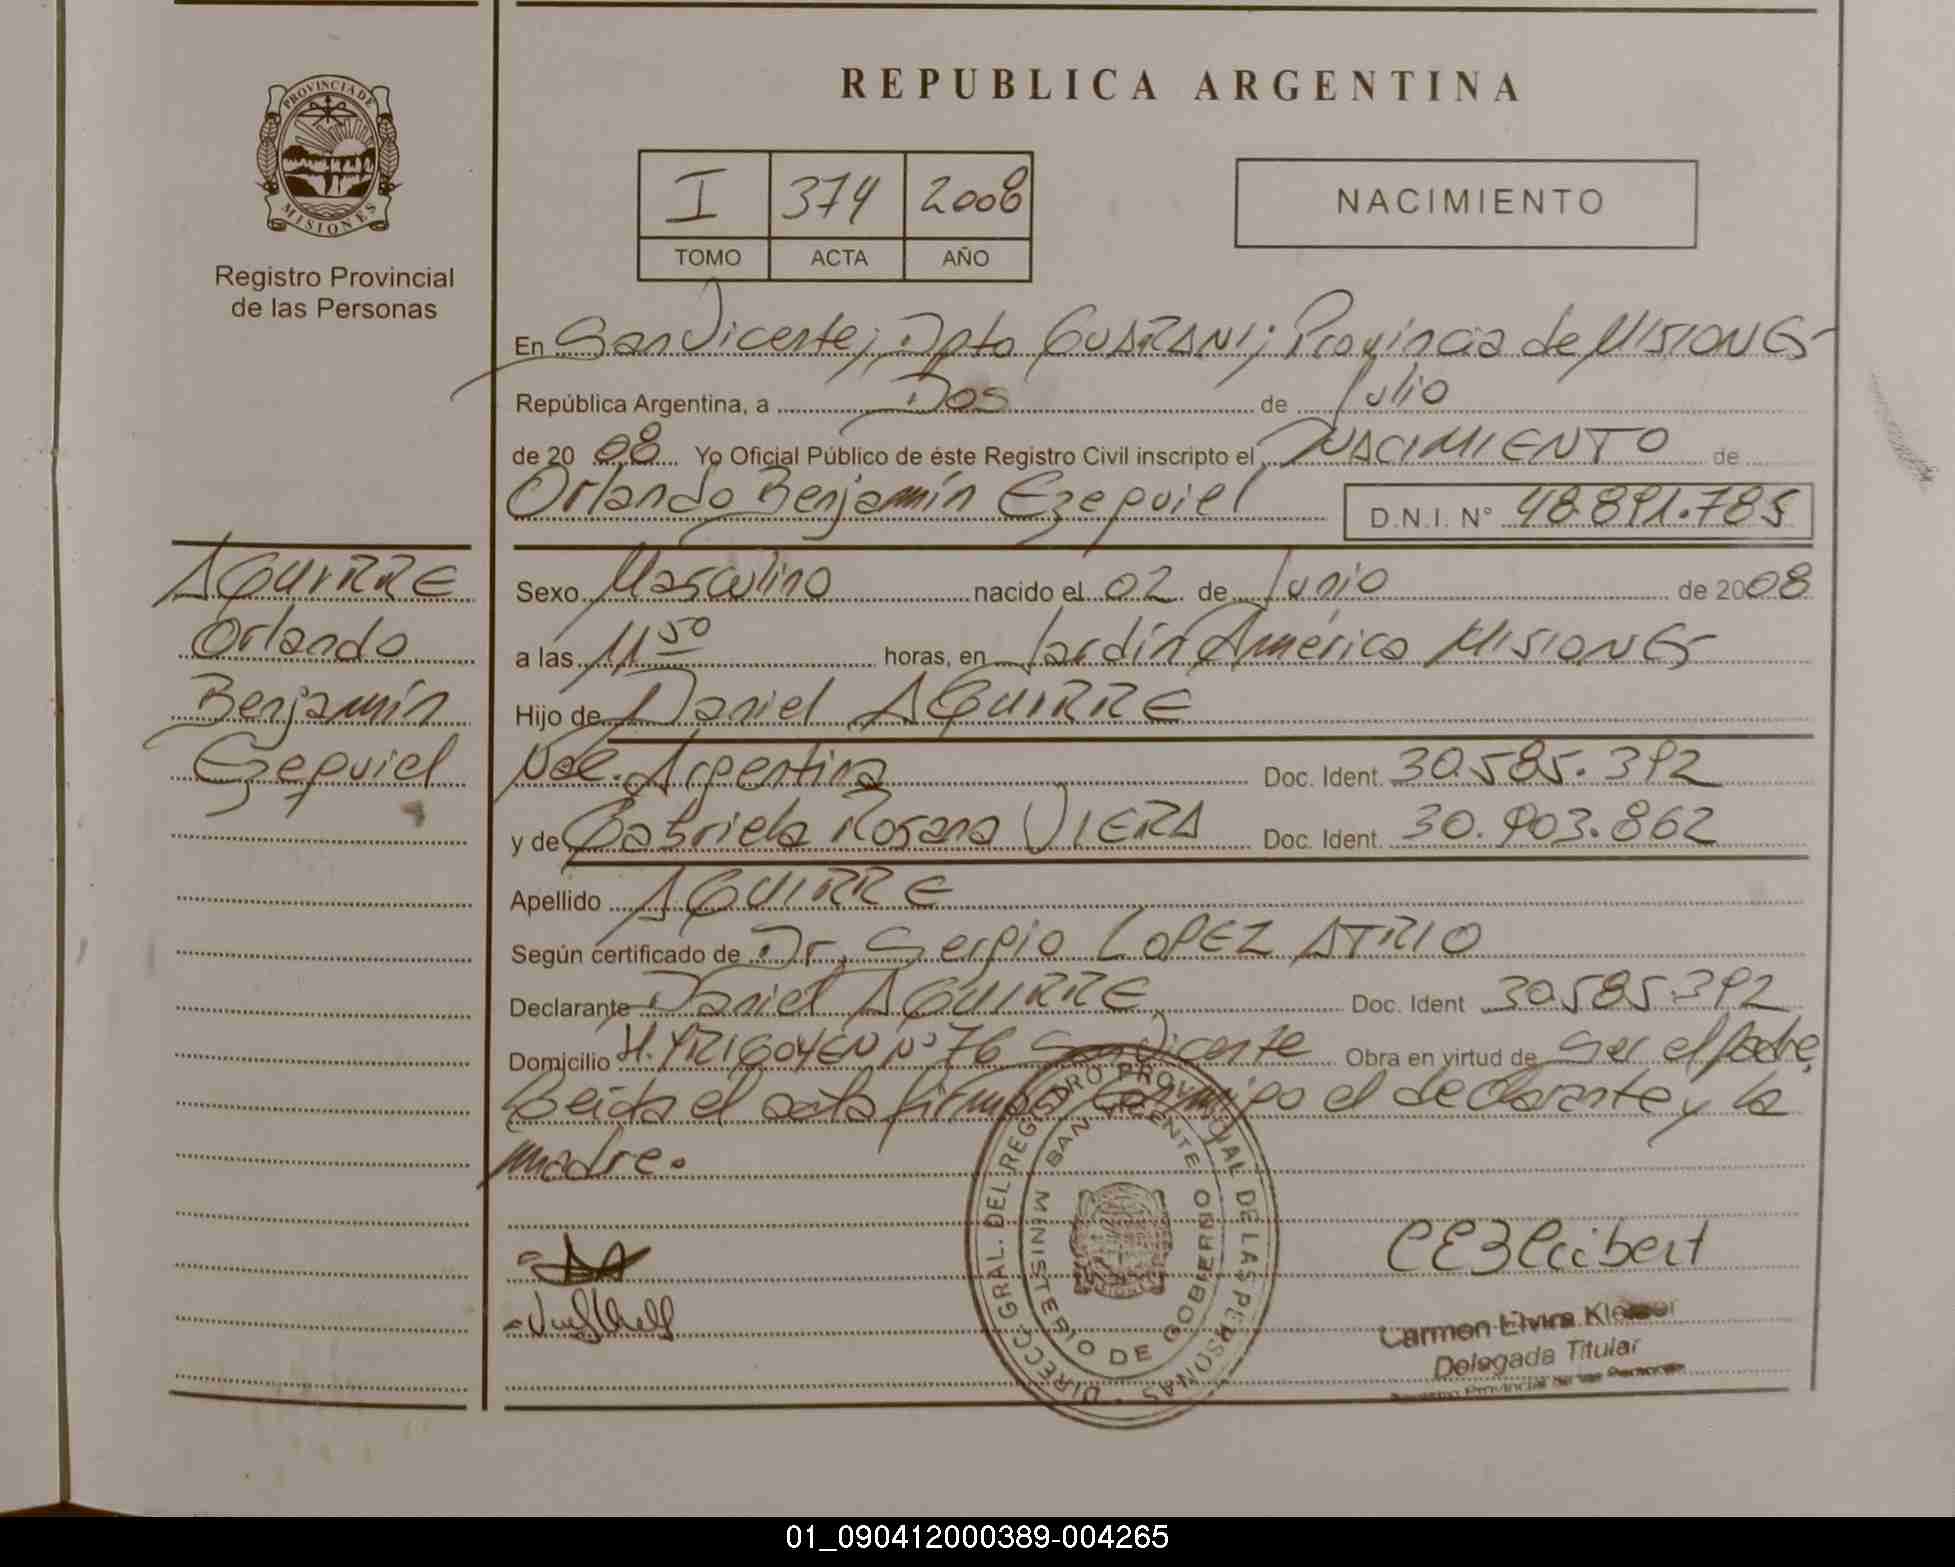 REPUBLICA ARGENTINA
PROVINCIA DE
MISIONES
Registro Provincial
de las Personas
I 374 2008
TOMO ACTA AÑO
NACIMIENTO
En San Vicente; Dpto GUARANI; Provincia de MISIONES
República Argentina, a Dos de Julio
de 20 08 Yo Oficial Público de éste Registro Civil inscripto el NACIMIENTO de
Orlando Benjamín Ezequiel D.N.I. N° 48.891.785
AGUIRRE
Orlando
Benjamín
Ezequiel
Sexo Masculino nacido el 02 de Junio de 2008
a las 11 50 horas, en Jardín América MISIONES
Hijo de Daniel AGUIRRE
Nac. Argentina Doc. Ident. 30.585.392
y de Gabriela Rosana VIERA Doc. Ident. 30.903.862
Apellido AGUIRRE
Según certificado de Dr. Sergio LOPEZ ATRIO
Declarante Daniel AGUIRRE Doc. Ident 30.585.392
Domicilio H. YRIGOYEN N° 76 San Vicente Obra en virtud de ser el padre,
Leida el acta firman conmigo el declarante y la
madre.
DIRECC. GRAL. DEL REGISTRO PROVINCIAL DE LAS PERSONAS
SAN VICENTE
MINISTERIO DE GOBIERNO
Carmen Elvira
Delegada Titular
Registro Provincial de las Personas
01_090412000389-004265